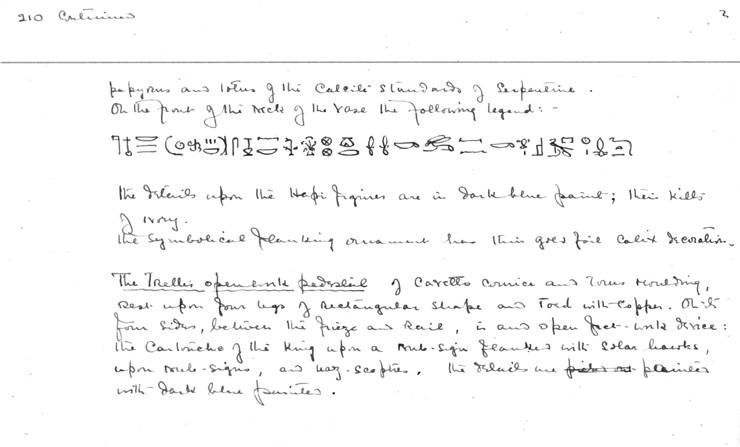 210 Continued 2
papyrus and lotus of the Calcite Standards of Serpentine.
On the front of the Neck of the Vase the following legend: -
the details upon the Hapi figures are in dark blue paint; their kilts
of ivory.
the symbolical flanking ornament has thin gold foil calix decoration.
The Trellis openwork pedestal of Cavetto Cornice and Torus Moulding,
rest upon four legs of rectangular shape and Toed with Copper. On its
four sides, between the frieze and rail, is and open fret-work device:
the Cartouche of the King upon a nub-sign flanked with Solar hawks,
upon nub-signs, and uaz-sceptres. the details are painted
with dark blue painted.